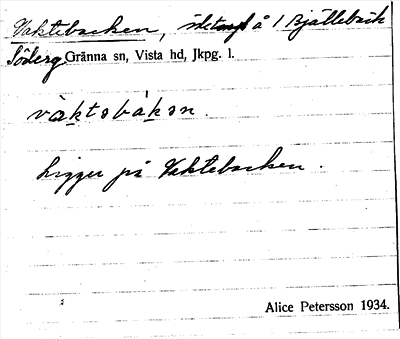 Vaktebacken, å 1 Bjällebäck
Söderg Gränna sn, Vista hd, Jkpg. l.
vàktəbàkən.
Ligger på Vaktebacken.
Alice Petersson 1934.